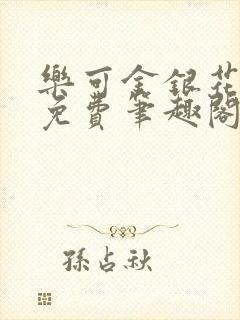 樂可金銀花
免費筆趣閣
孫占秋